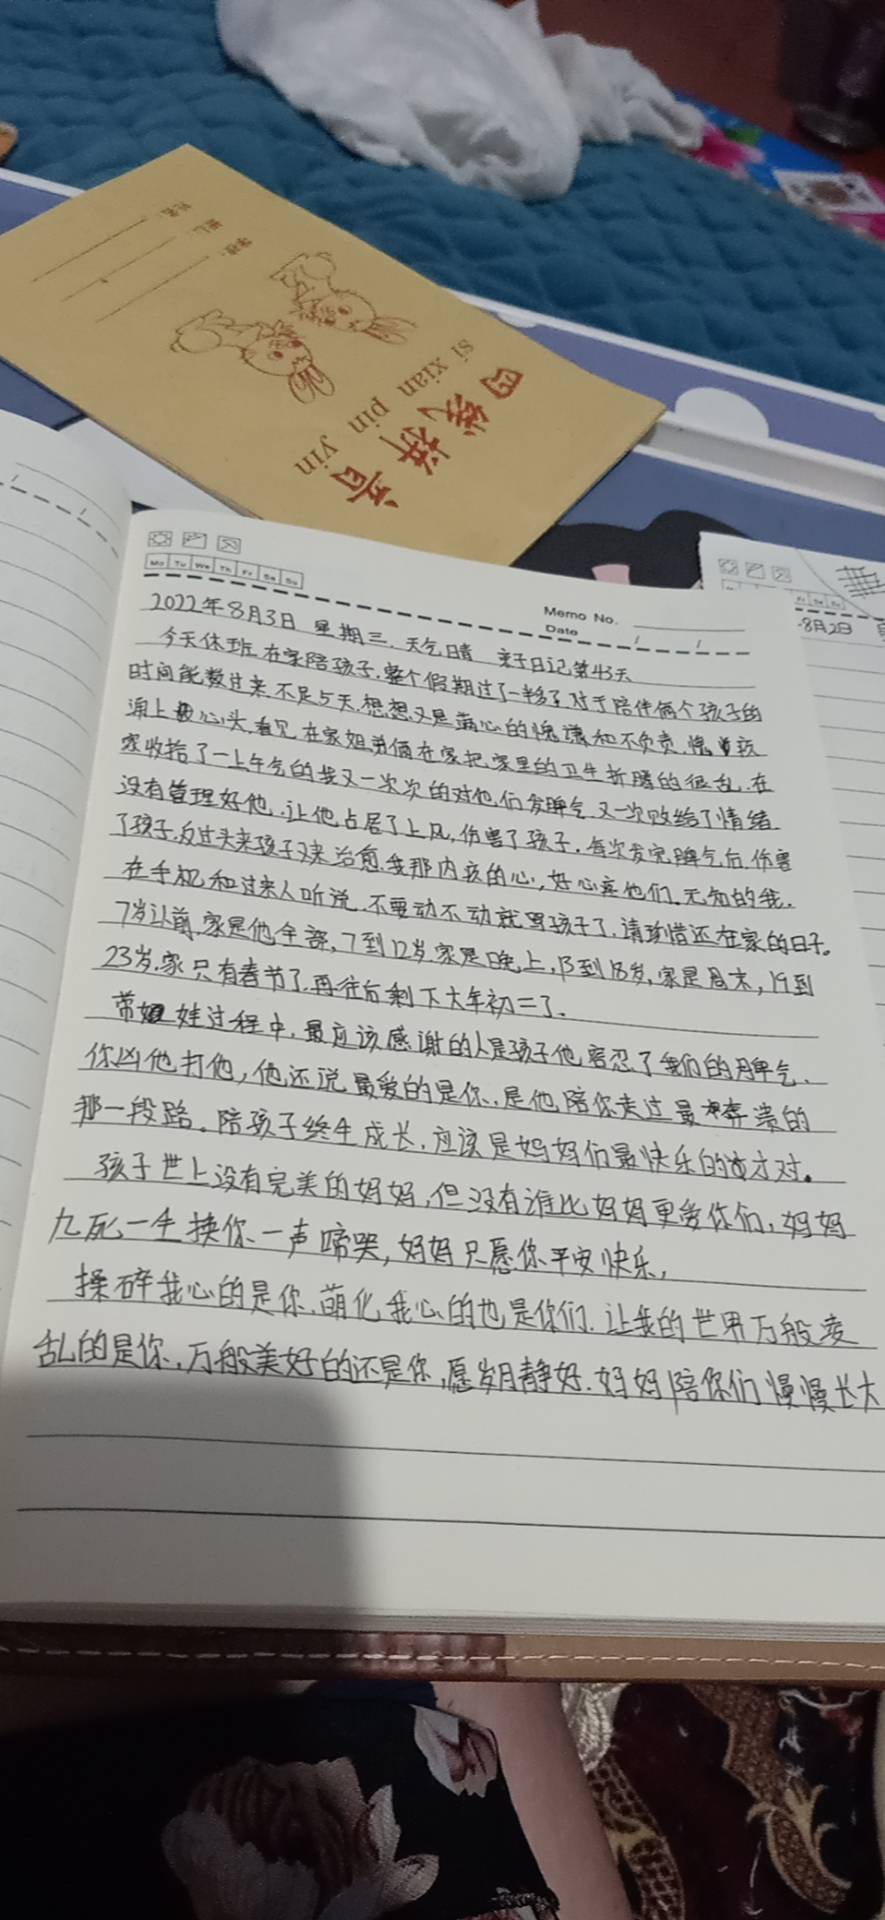 四线拼音
si xian pin yin
Mo Tu We Th Fr Sa Su
Memo No.
Date / /
8月2日
2022年8月3日 星期三 天气晴 亲子日记第43天
今天休班.在家陪孩子.整个假期过了一半多了.对于陪伴俩个孩子的
时间能数过来.不足5天.想想又是满心的愧谦和不负责.愧
涌上心头.看见在家姐弟俩在家把家里的卫生折腾的很乱.在
家收拾了一上午气的我又一次次的对他们发脾气.又一次败给了情绪
没有管理好他.让他占居了上风,伤害了孩子.每次发完脾气后.伤害
了孩子.反过头来孩子又来治愈我那内疚的心,好心疼他们.无知的我.
在手机和过来人听说.不要动不动就骂孩子了.请珍惜还在家的日子。
7岁以前.家是他全部,7到12岁家是晚上,13到18岁,家是周末,19到
23岁.家只有春节了.再往后剩下大年初二了.
带娃过程中.最应该感谢的人是孩子他容忍了我们的脾气.
你凶他打他,他还说最爱的是你.是他陪你走过最奔溃的
那一段路。陪孩子终生成长.应该是妈妈们最快乐的才对。
孩子世上没有完美的妈妈,但没有谁比妈妈更爱你们,妈妈
九死一生换你一声啼哭,妈妈只愿你平安快乐,
操碎我心的是你.萌化我心的也是你们.让我的世界万般凌
乱的是你,万般美好的还是你,愿岁月静好.妈妈陪你们慢慢长大